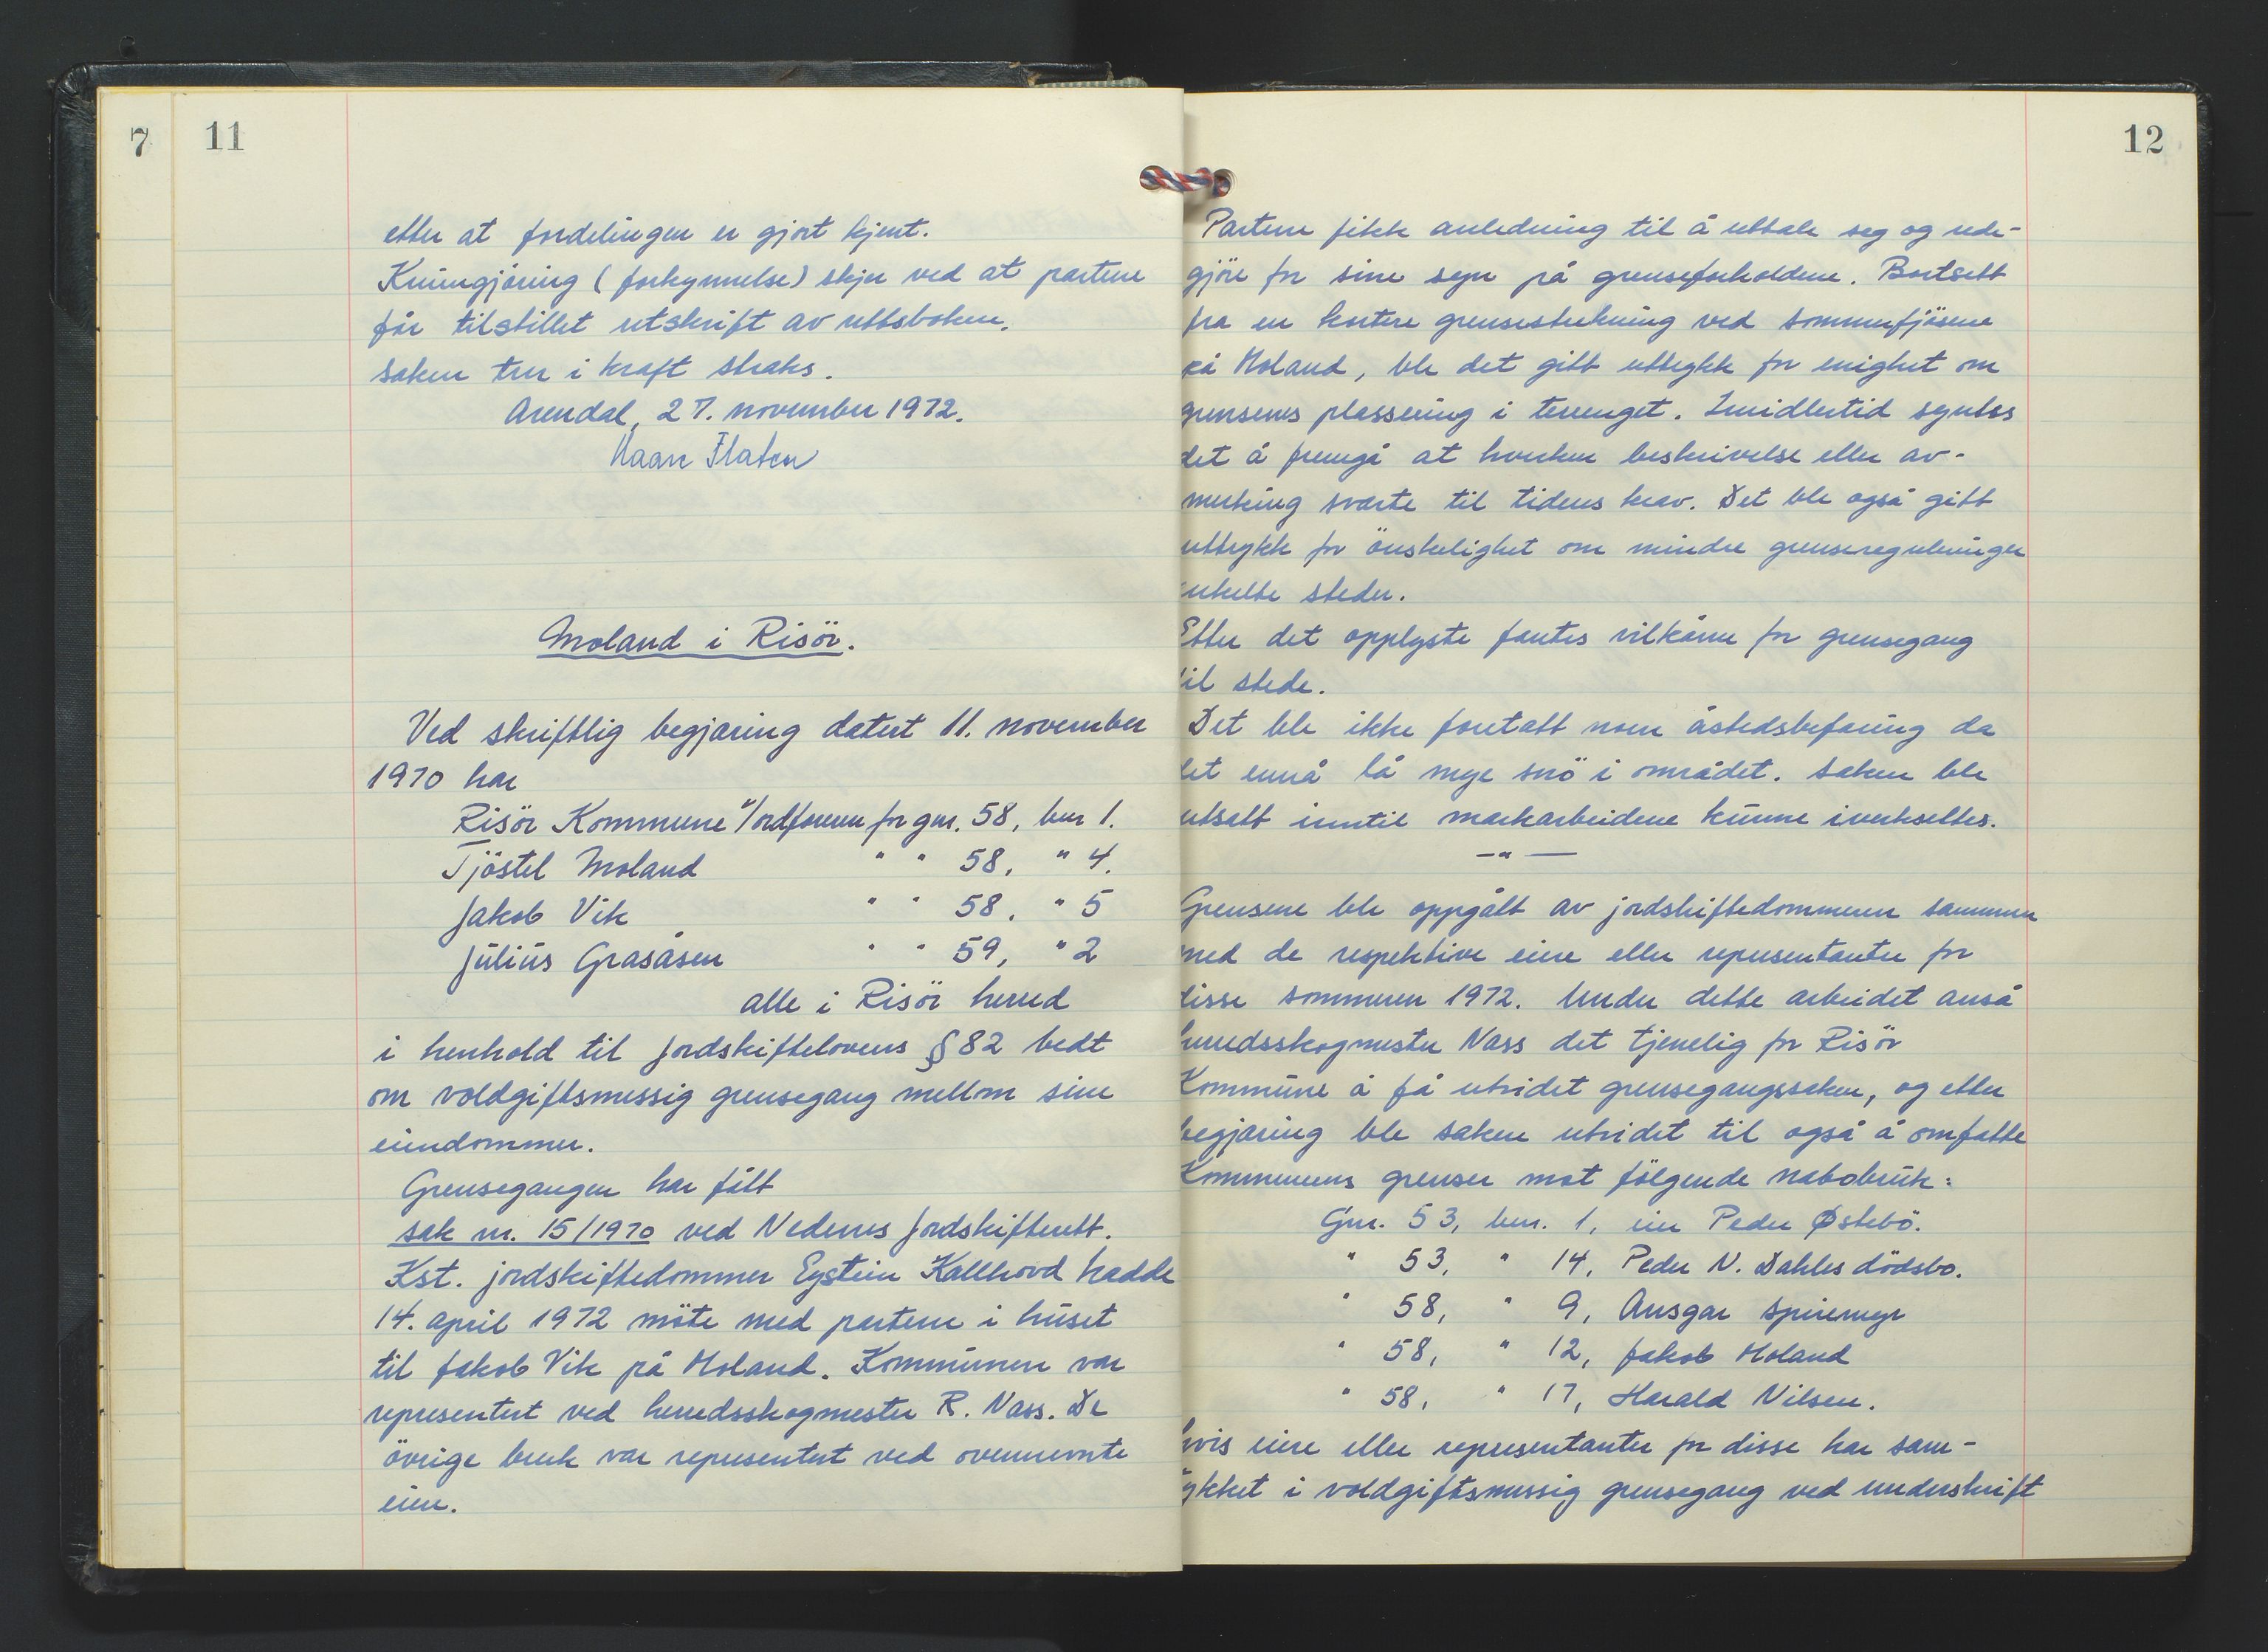 7 11
etter at fordelingen er gjort kjent.
Kunngjöring (forkynnelse) skjer ved at partene
får tilstillet utskrift av rettsboken.
Saken trer i kraft straks.
Arendal, 27. november 1972.
Haare Flaten
Moland i Risör.
Ved skriftlig begjæring datert 11. november
1970 har
Risör Kommune v/ordföreren for gnr. 58, bnr 1.
Tjöstel Moland " " 58, " 4.
Jakob Vik " " 58, " 5
Julius Grasåsen " " 59, " 2
alle i Risör herred
i henhold til jordskiftelovens § 82 bedt
om voldgiftsmessig grensegang mellom sine
eiendommer.
Grensegangen har fått
sak nr. 15/1970 ved Nedenes jordskifterett.
Kst. jordskiftedommer Eystein Kallhovd hadde
14. april 1972 möte med partene i huset
til Jakob Vik på Moland. Kommunen var
representert ved herredsskogmester R. Næss. De
övrige bruk var representert ved ovennevnte
eier.
12
Partene fikk anledning til å uttale seg og rede-
gjöre for sine syn på grenseforholdene. Bortsett
fra en kortere grensestrekning ved sommerfjösene
på Moland, ble det gitt uttrykk for enighet om
grensenes plassering i terrenget. Imidlertid syntes
det å fremgå at hverken beskrivelse eller av-
merking svarte til tidens krav. Det ble også gitt
uttrykk for önskelighet om mindre grensereguleringer
enkelte steder.
Etter det opplyste fantes vilkårene for grensegang
til stede.
Det ble ikke foretatt noen åstedsbefaring da
det ennå lå mye snö i området. Saken ble
utsatt inntil markarbeidene kunne iverksettes.
— " —
Grensene ble oppgått av jordskiftedommeren sammen
med de respektive eiere eller representanter for
disse sommeren 1972. Under dette arbeidet anså
herredsskogmester Næss det tjenelig for Risör
Kommune å få utvidet grensegangssaken, og etter
begjæring ble saken utvidet til også å omfatte
Kommunens grenser mot fölgende nabobruk:
Gnr. 53, bnr. 1, eier Peder Østebö.
" 53, " 14, Peder N. Dahles dödsbo.
" 58, " 9, Ansgar Spiremyr
" 58, " 12, Jakob Moland
" 58, " 17, Harald Nilsen.
hvis eiere eller representanter for disse har sam-
tykket i voldgiftsmessig grensegang ved underskrift